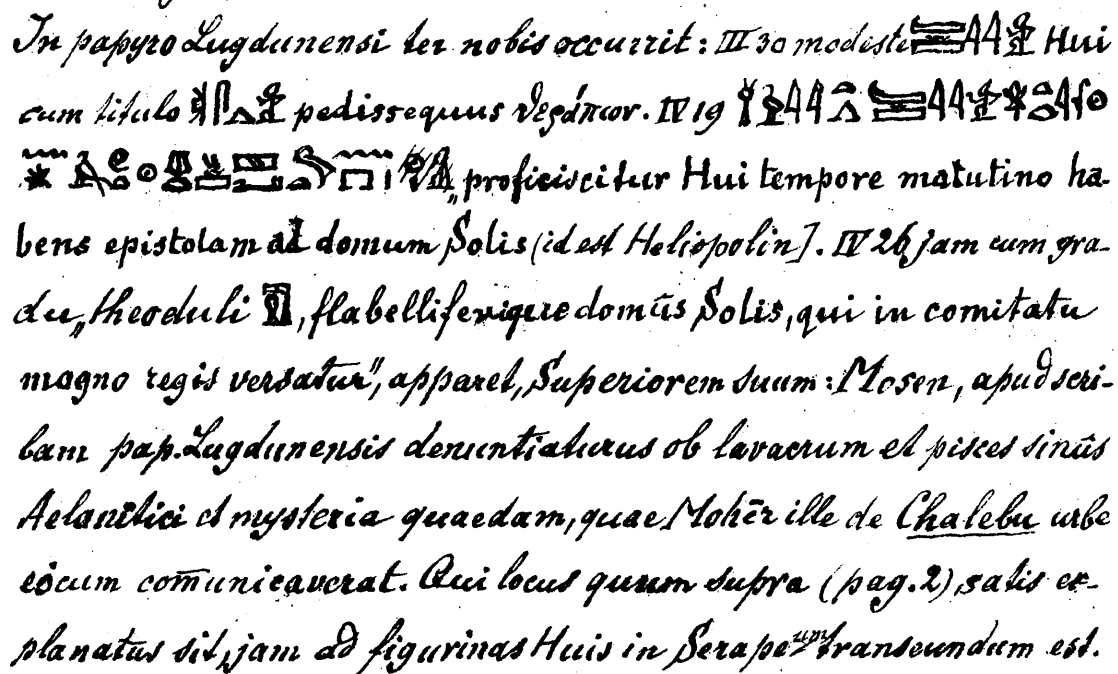 In papyro Lugdunensi ter nobis occurrit: III 30 modeste Hui
cum titulo pedissequus θεράπων. IV 19
„proficiscitur Hui tempore matutino ha-
bens epistolam ad domum Solis (id est Heliopolin]. IV 26 jam cum gra-
du „theoduli , flabelliferique domûs Solis, qui in comitatu
magno regis versatur“, apparet, Superiorem suum: Mosen, apud scri-
bam pap. Lugdunensis denuntiaturus ob lavacrum et pisces sinûs
Aelanitici et mysteria quaedam, quae Mohēr ille de Chalebu urbe
eocum com̄unicaverat. Qui locus quum supra (pag. 2) satis ex-
planatus sit, jam ad figurinas Huis in Serapeum transeundum est.